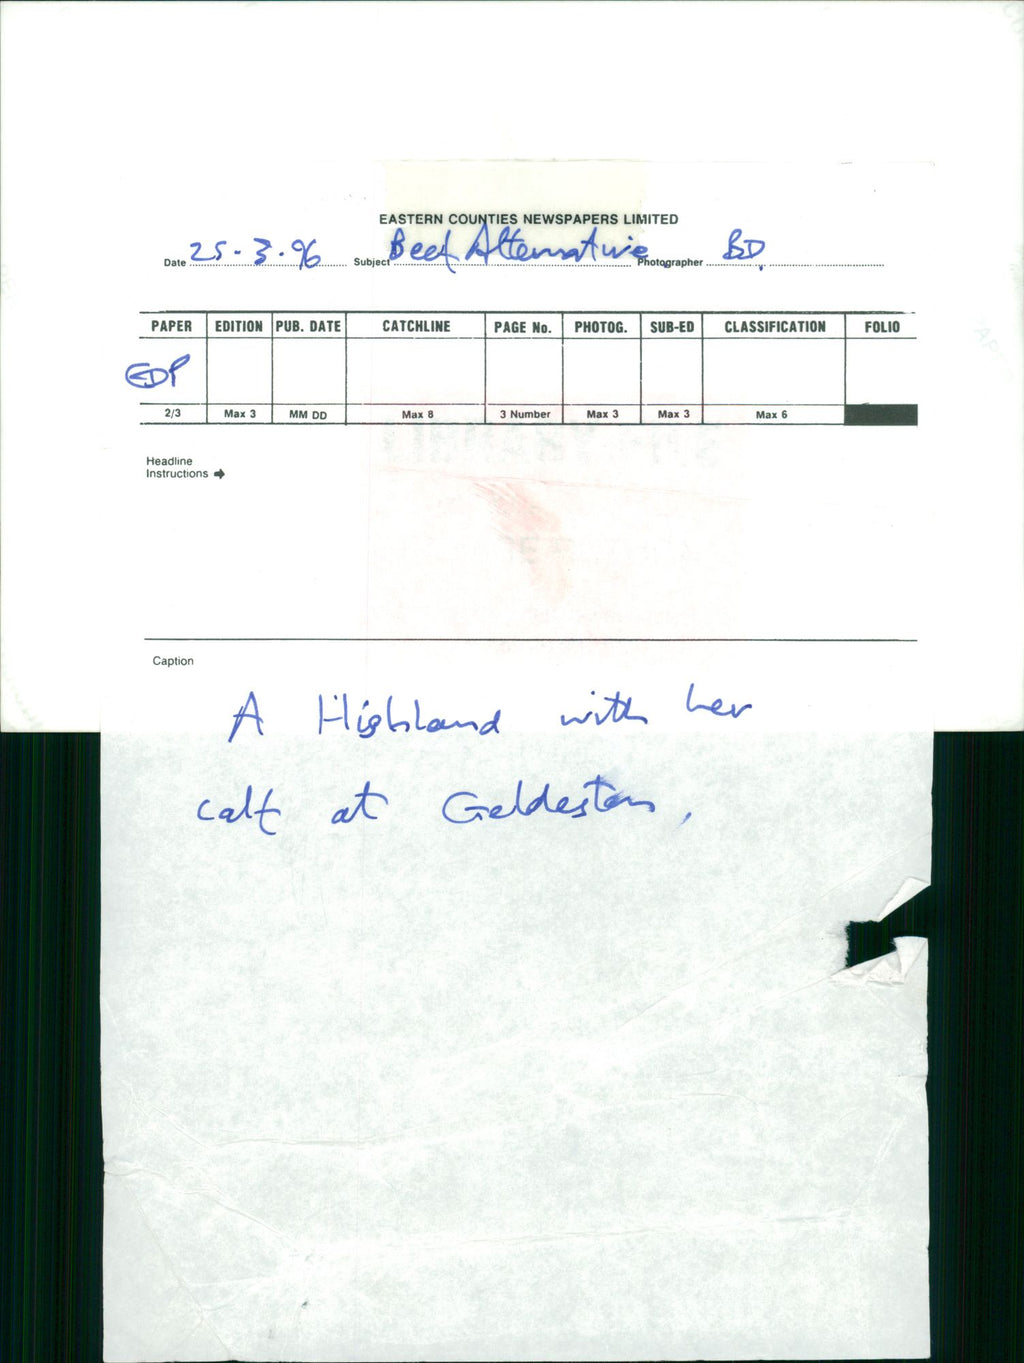 EASTERN COUNTIES NEWSPAPERS LIMITED
Date 25-3-96 Subject Beef Alternative Photographer BD.
PAPER EDITION PUB. DATE CATCHLINE PAGE No. PHOTOG. SUB-ED CLASSIFICATION FOLIO
EDP
2/3 Max 3 MM DD Max 8 3 Number Max 3 Max 3 Max 6
Headline
Instructions →
Caption
A Highland with her
calf at Geldeston,